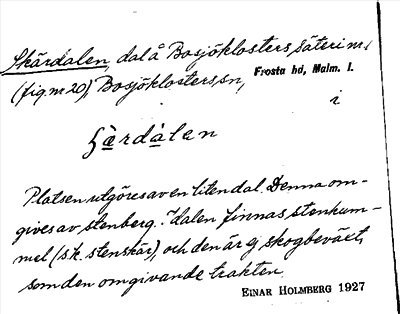 Skärdalen, dal å Bosjöklosters säteri m.
(fig. nr 20), Bosjöklosters sn,
Frosta hd, Malm. l.
i
Platsen utgöres av en liten dal. Denna om-
gives av stenberg. I dalen finnas stenkum-
mel (s.k. stenskär), och den är ej skogbeväxt,
som den omgivande trakten.
EINAR HOLMBERG 1927